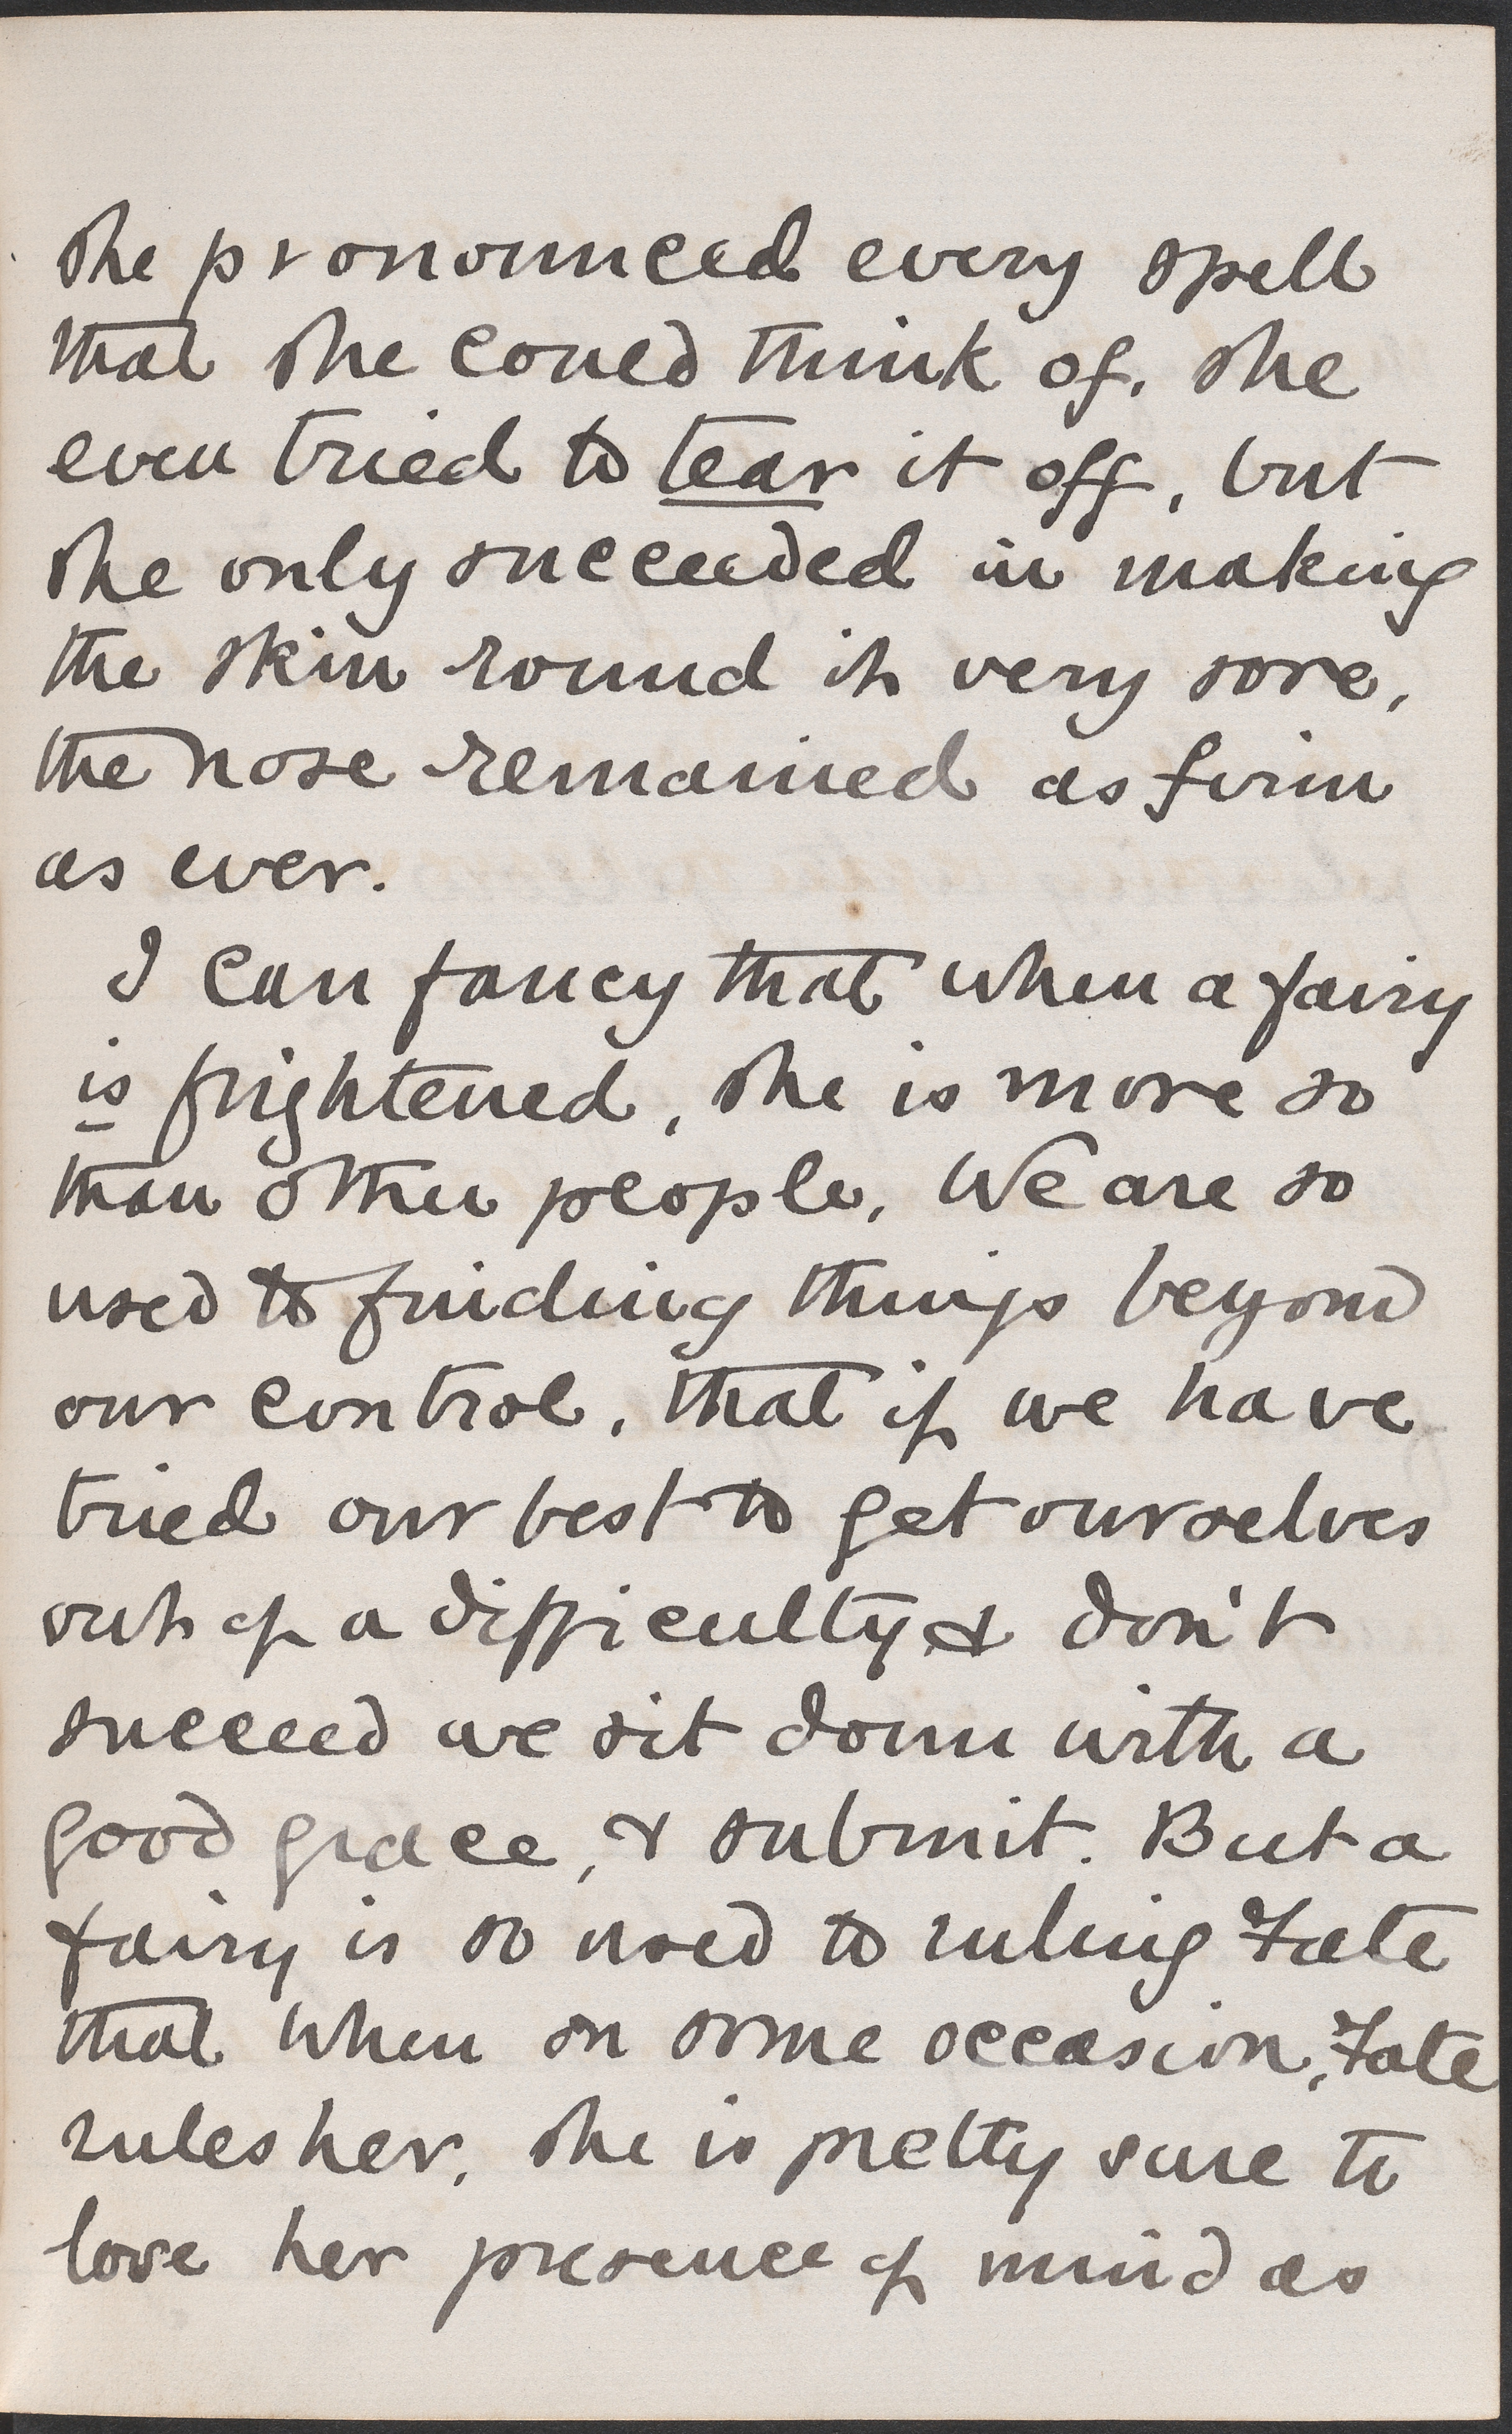 she pronounced every spell
that she could think of. she
even tried to tear it off, but
she only succeeded in making
the skin round it very sore,
the nose remained as firm
as ever.
I can fancy that when a fairy
is frightened, she is more so
than other people. We are so
used to finding things beyond
our control, that if we have
tried our best to get ourselves
out of a difficulty & don't
succeed we sit down with a
good grace, & submit. But a
fairy is so used to ruling Fate
that when on some occasion, Fate
rules her, she is pretty sure to
lose her presence of mind as